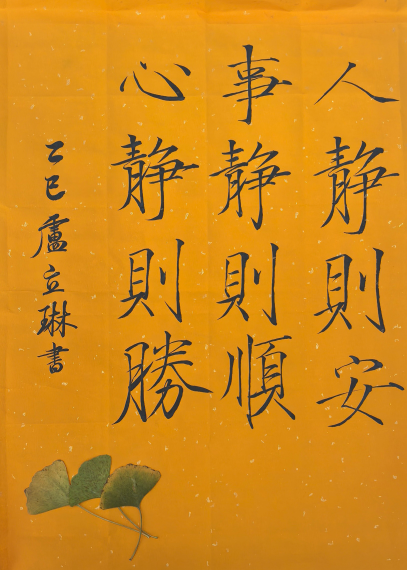 人静則安
事静則順
心静則勝
乙巳盧立琳書